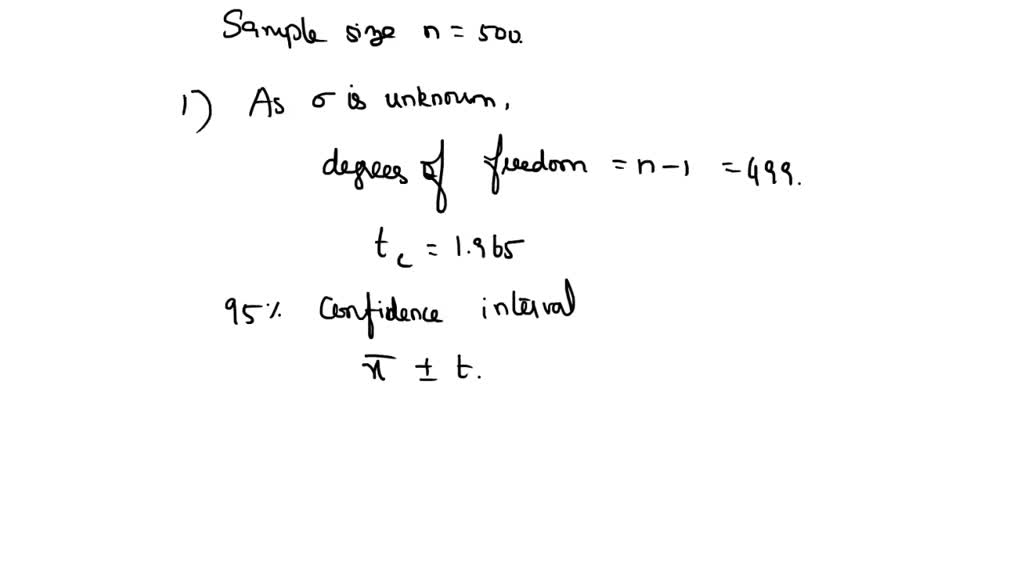 Sample size n = 500.
1) As σ is unknown,
degrees of freedom = n-1 = 499.
t_c = 1.965
95% Confidence interval
x̄ ± t.